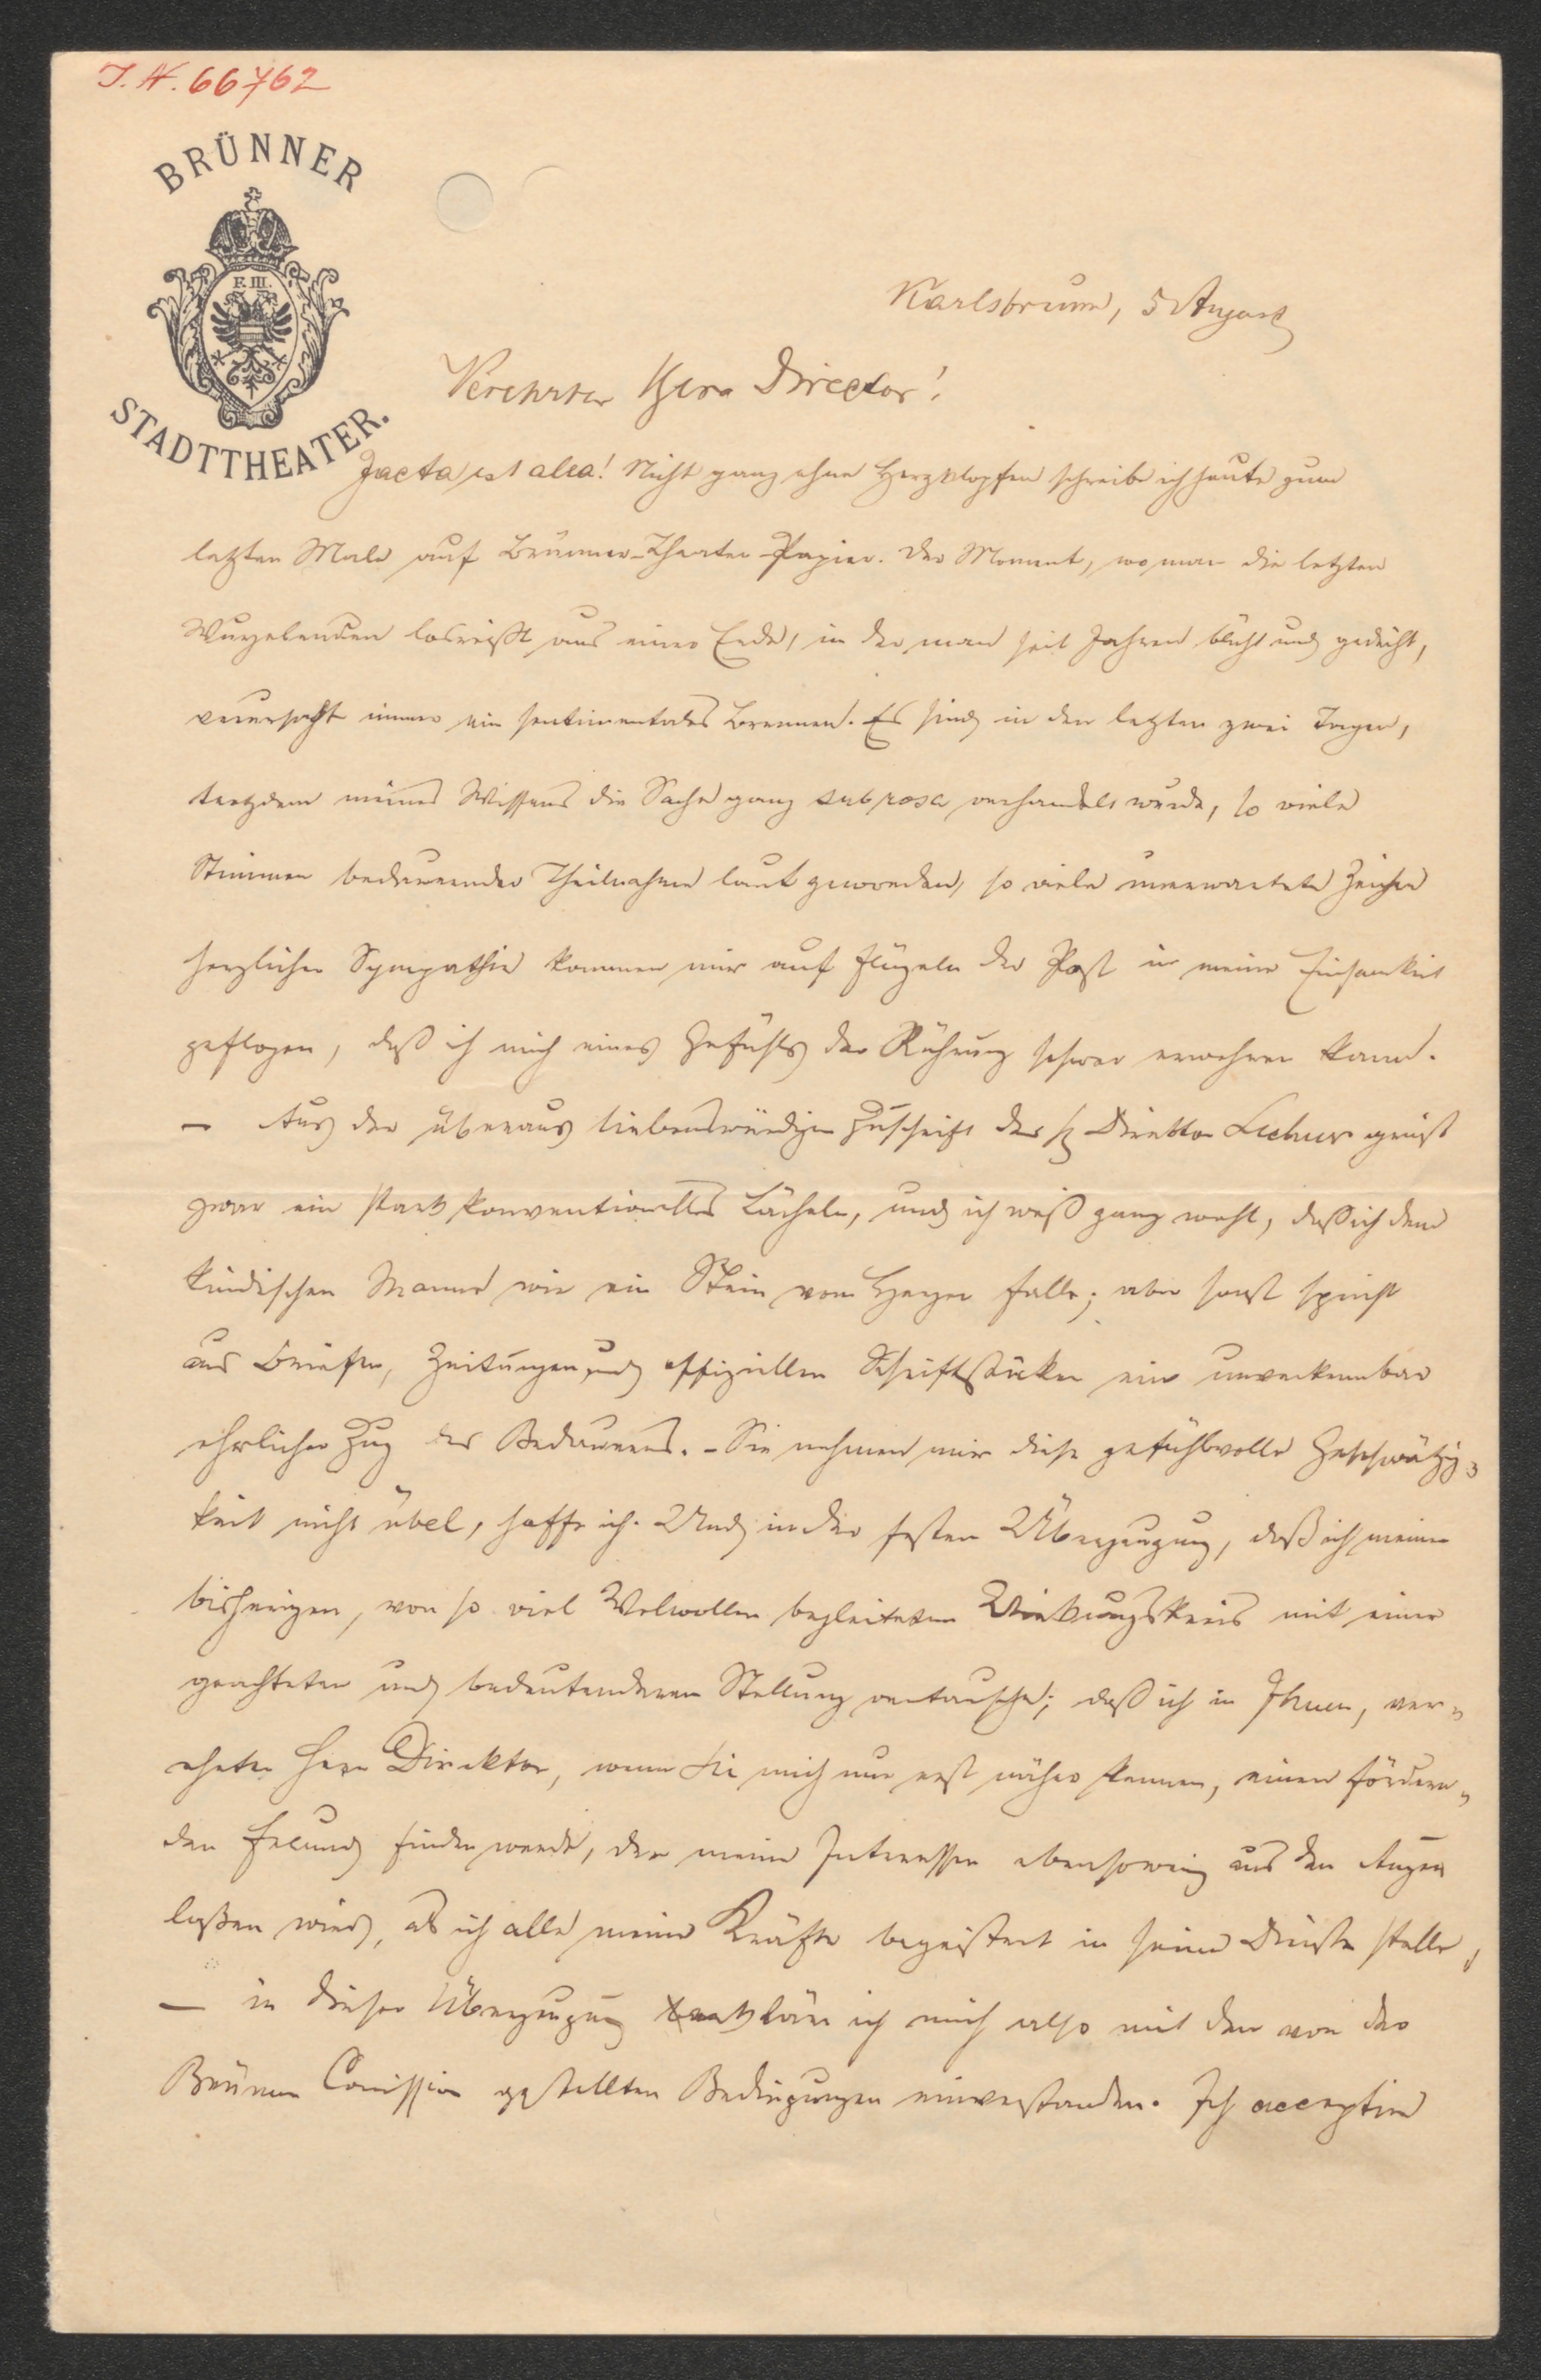 J. N. 66762
BRÜNNER
F. III.
STADTTHEATER.
Karlsbrunn, 5 August
Verehrter Herr Director!
Jacta est alea! Nicht ganz ohne Herzklopfen schreibe ich heute zum
letzten Male auf Brünner-Theater-Papier. Der Moment, wo man die letzten
Wurzelenden losreißt aus einer Erde, in der man seit Jahren blüht und gedeiht,
verursacht immer ein sentimentales Brennen. Es sind in den letzten zwei Tagen,
trotzdem meines Wissens die Sache ganz sub rosa verhandelt wurde, so viele
Stimmen bedauernder Theilnahme laut geworden, so viele unerwartete Zeichen
herzlicher Sympathie kommen mir auf Flügeln der Post in meine Einsamkeit
geflogen, daß ich mich eines Gefühls der Rührung schwer erwehren kann.
— Aus der überaus liebenswürdigen Zuschrift des H Direktor Lechner grüßt
zwar ein stark konventionelles Lächeln, und ich weiß ganz wohl, daß ich dem
kindischen Manne wie ein Stein vom Herzen falle; aber sonst spricht
aus Briefen, Zeitungen und offiziellen Schriftstücken ein unverkennbar
ehrlicher Zug des Bedauerns. – Sie nehmen mir diese gefühlvolle Geschwätzig=
keit nicht übel, hoffe ich. Und in der festen Überzeugung, daß ich meinen
bisherigen, von so viel Wolwollen begleiteten Wirkungskreis mit einer
geachteten und bedeutenderen Stellung vertausche; daß ich in Ihnen, ver=
ehrter Herr Direktor, wenn Sie mich nur erst näher kennen, einen fördern=
den Freund finden werde, der meine Interessen ebensowenig aus den Augen
laßen wird, als ich alle meine Kräfte begeistert in seine Dienste stelle,
— in dieser Überzeugung erkläre ich mich also mit den von der
Brünner Comission gestellten Bedingungen einverstanden. Ich acceptire